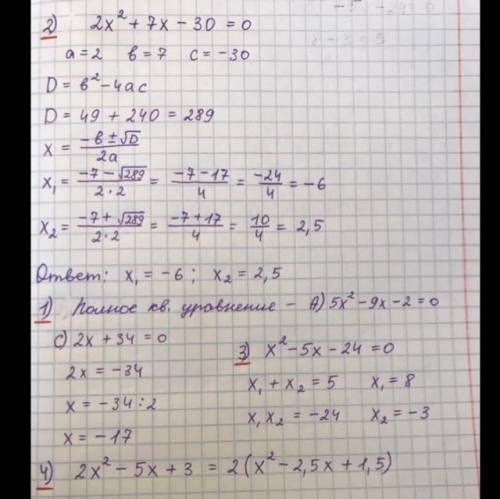 2) 2x² + 7x - 30 = 0
a = 2 в = 7 с = -30
D = в² - 4ac
D = 49 + 240 = 289
x = (-в ± √D) / 2a
x₁ = (-7 - √289) / (2·2) = (-7 - 17) / 4 = -24/4 = -6
x₂ = (-7 + √289) / (2·2) = (-7 + 17) / 4 = 10/4 = 2,5
Ответ: x₁ = -6; x₂ = 2,5
1) Полное кв. уравнение - А) 5x² - 9x - 2 = 0
С) 2x + 34 = 0
2x = -34
x = -34 : 2
x = -17
3) x² - 5x - 24 = 0
x₁ + x₂ = 5 x₁ = 8
x₁ x₂ = -24 x₂ = -3
4) 2x² - 5x + 3 = 2(x² - 2,5x + 1,5)